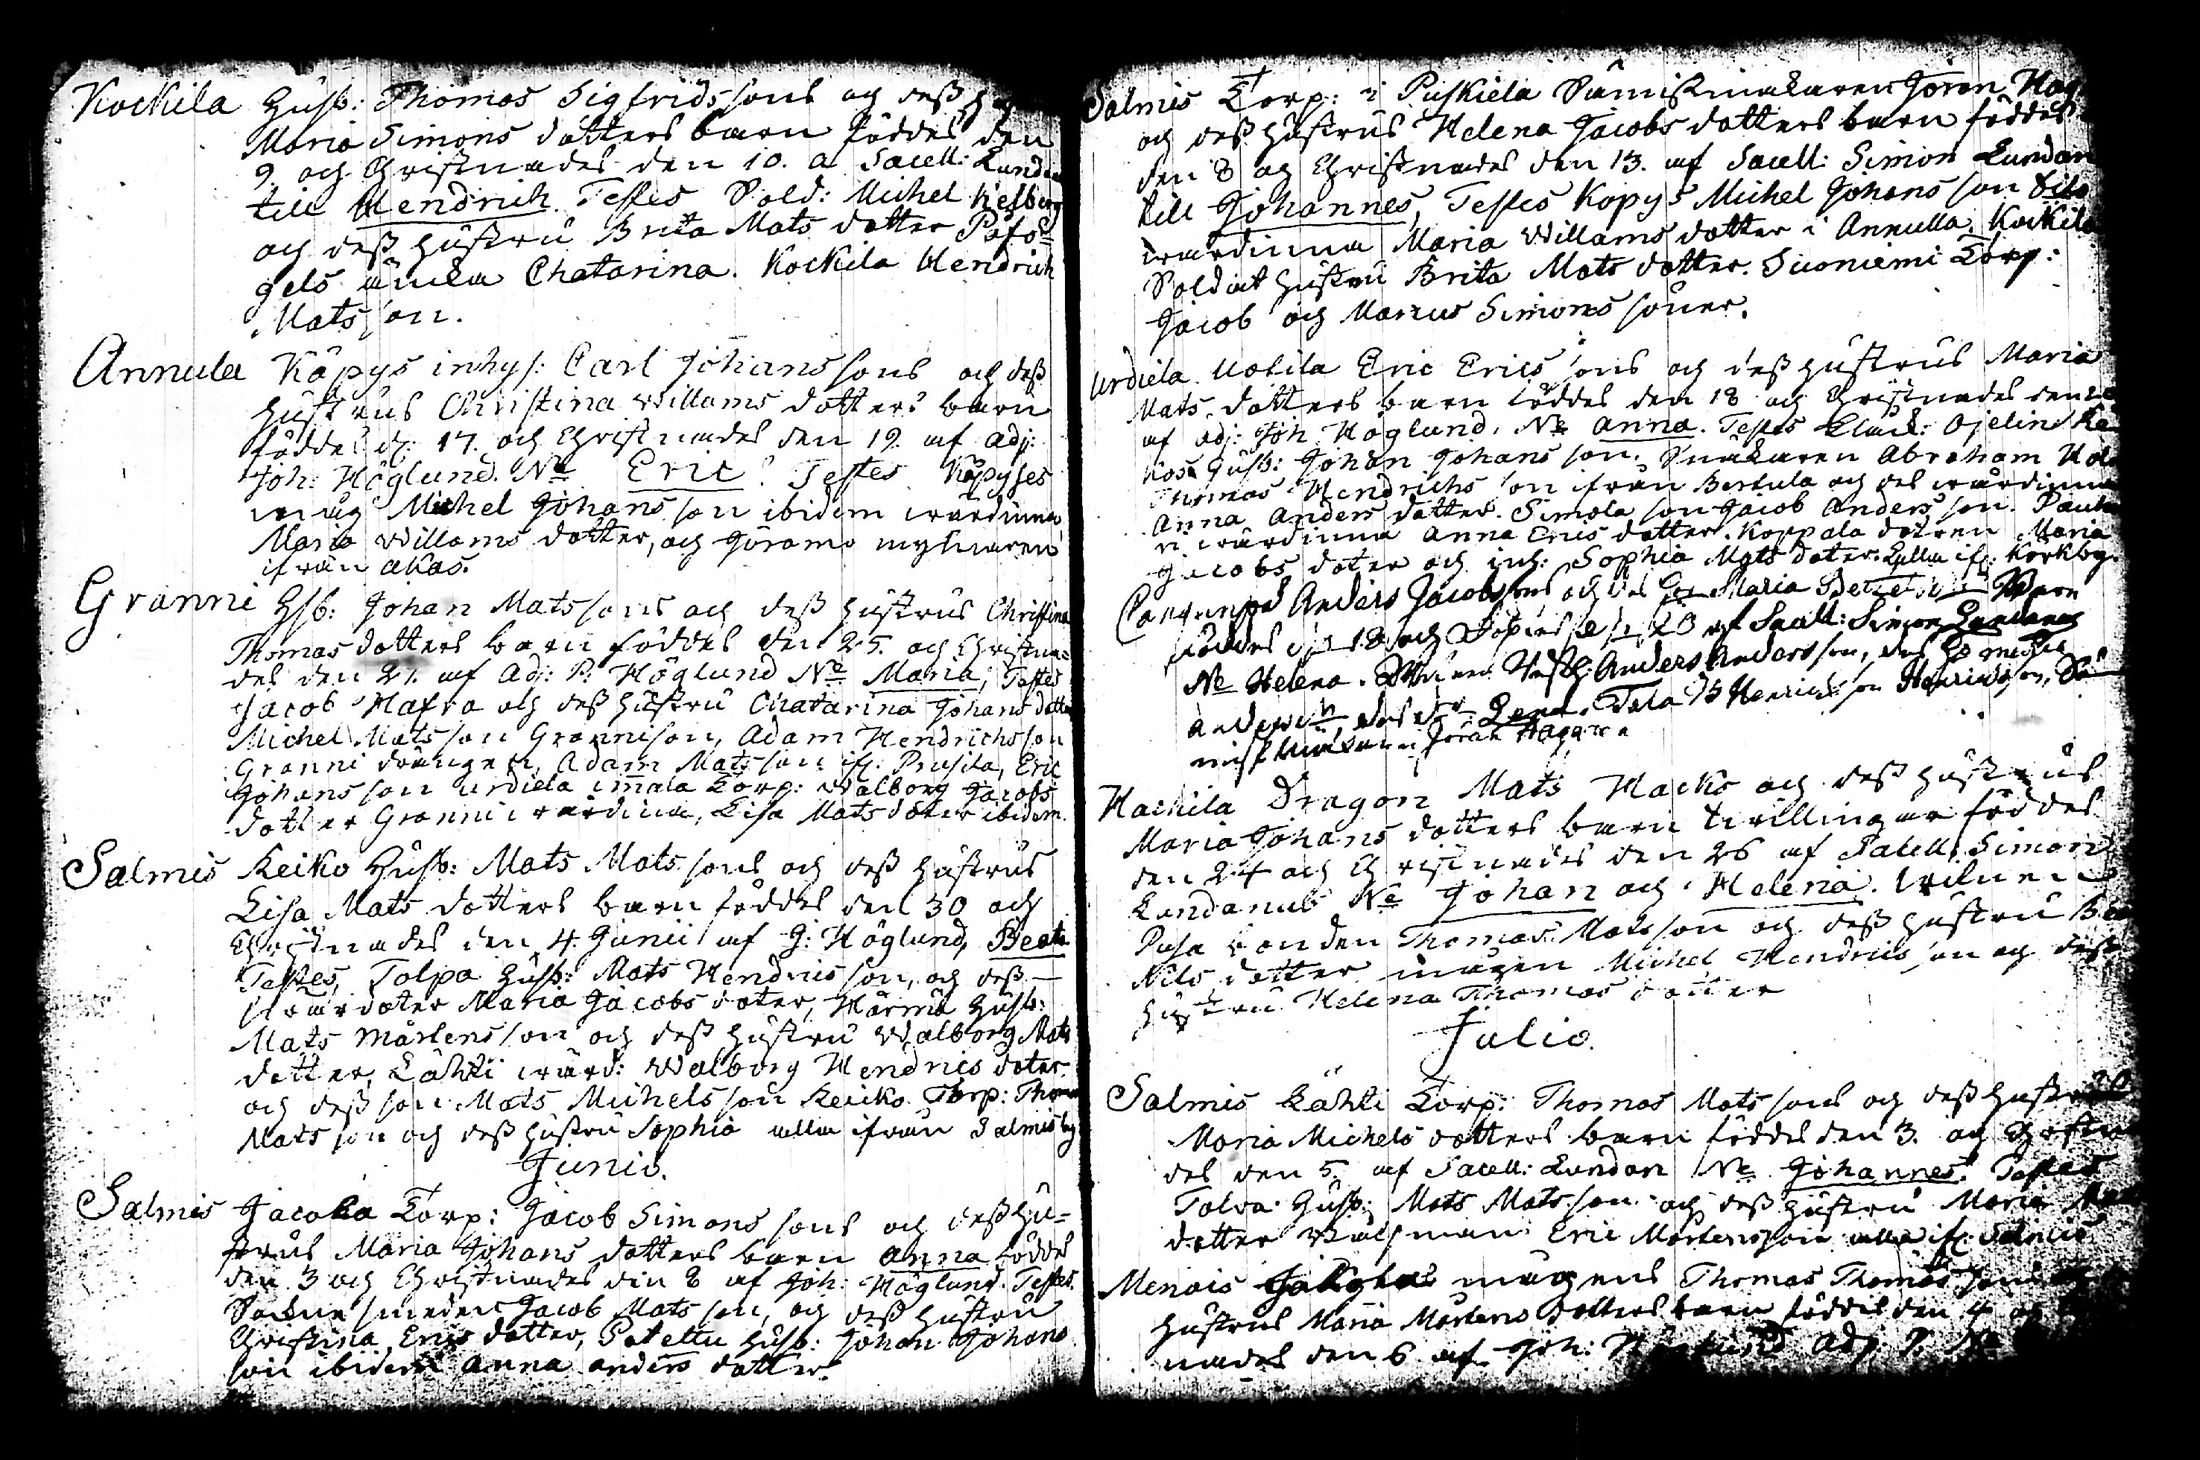 Kockila Husb: Thomas Sigfrids sons och deß
Maria Simons dotters barn föddes den
9 och Christnades den 10. a Sacell: Lundan
till Hendrich. Testes Sold: Michel Kelberg
och deß hustru Brita Mats dotter Påfo=
gels änka Chatarina. Kockila Hendrich
Matsson.
Annula Köpys inhys: Carl Johans sons och deß
hustrus Christina Willams dotters barn
föddes d: 17. och Christnades den 19. af adj:
Joh: Höglund. Ne Eric. Testes Köpyses
måg Michel Johans son ibidem wärdinna
Maria Willams dotter, och Göramo mylnaren
ifrån akas.
Granni Hsb: Johan Mats sons och deß hustrus Christina
Thomas dotters barn föddes den 25. och Christna=
des den 27. af Adj: P. Höglund Ne Maria, Testes
Jacob Hafra och deß hustru Chatarina Johans dotter
Michel Mats son Granni son, Adam Hendrichs son
Granni drängen, Adam Mats son if: Prusila, Eric
Johans son urdiela immala Torp: Walborg Jacobs
dotter Granni wärdina, Lisa Mats doter ibidem.
Salmis Keiko Husb: Mats Mats sons och deß hustrus
Lisa Mats dotters barn föddes den 30 och
Christnades den 4. Junii af J: Höglund, Beata
Testes, Tolpa Husb: Mats Hendrics son, och deß
swärdoter Maria Jacobs doter, Härmä Husb:
Mats Mårtens son och deß hustru Walborg Mats
dotter, Lähti wärd: Walborg Hendrics doter
och deß son Mats Michels son Keiko Torp: Thomas
Mats son och deß hustru Sophia alla ifrån Salmis by
Junio.
Salmis Jacola Torp: Jacob Simons sons och deß hu=
strus Maria Johans dotters barn Anna föddes
den 3 och Christnades din 8 af Joh: Höglund. Testes
Sockne smeden Jacob Mats son, och deß hustru
Christina Erics dotter, Peteltu Husb: Johan Johans
son ibidem anna anders dotter.
Salmis Torp: i Puskiela Sämiskmakaren Jöran
och deß hustrus Helena Jacobs dotters barn föddes
den 8 och Christnades den 13. af Sacell: Simon Lundan
till Johannes, Testes Kopys Michel Johans son dito
wärdinna Maria Willams dotter i Annulla. Kockila
Soldat hustru Brita Mats dotter. Suoniemi Torp:
Jacob och Marcus Simons söner.
Urdiela Uotila Eric Erics sons och deß hustrus Maria
Mats dotters barn föddes den 18 och Christnades den
af adj: Joh Höglund. Ne Anna. Testes Ojelin
Husb: Johan Johans son. Snickaren Abraham
Thomas Hendrichs son ifrån Bertula och des wärdinna
Anna Anders dotter. Simola son Jacob Anders son.
wärdinna Anna Erics dotter. Koppala dotren Maria
Jacobs doter och inh: Sophia Mats doter. alla if: Korkby.
Anders Jacobsons och des Maria barn
föddes d 18 och Döptes 20 af Sacell: Simon Lundanus
Ne Helena. Anders Anders son, des
Tala Henrichs son
Jöran Hagar
Hackila Dragon Mats Hacks och deß hustrus
Maria Johans dotters barn twillingar föddes
den 24 och Christnades den 26 af Sacell: Simon
Lundanus Ne Johan och Helena. Witnen
Pusa bonden Thomas Mats son och deß hustru
Nils dotter mågen Michel Hendrics son och deß
hustru Helena Thomas dotter
Julio.
Salmis Lähti Torp: Thomas Mats sons och deß hustrus
Maria Michels dotters barn föddes den 3. och Christna
des den 5. af Sacell: Lundan Ne Johannes. Testes
Tolva Husb: Mats Mats son och deß hustru Maria
dotter Eric Mårtens son alla if: Salmis
Menois mågens Thomas Thomas sons
hustrus Maria Mårtens dotters barn föddes den 4 och
nades den 6 af Joh: Höglund Adj: Ne